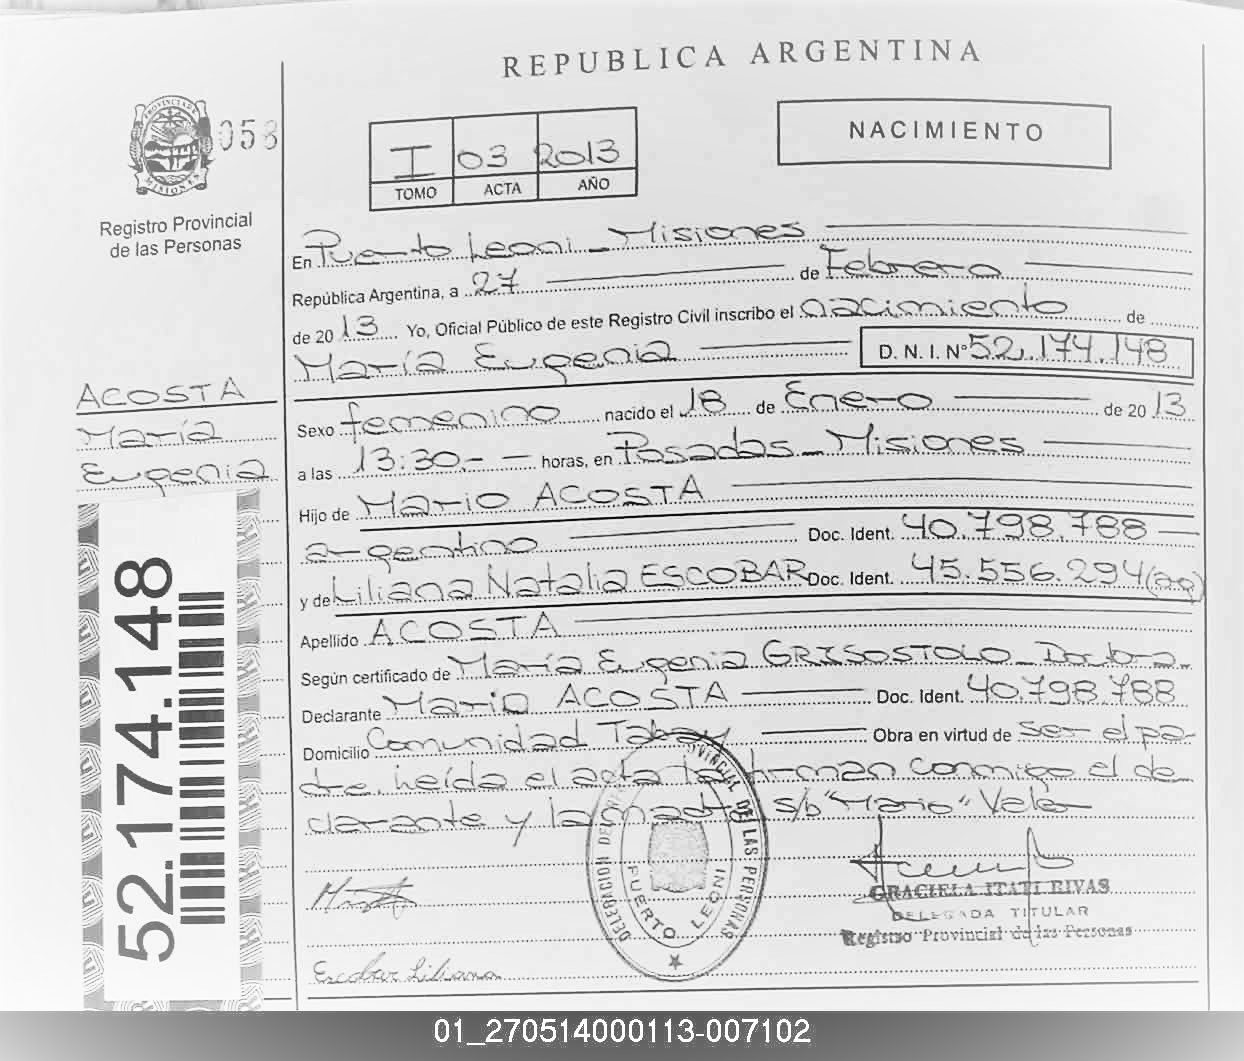 REPUBLICA ARGENTINA
PROVINCIA DE MISIONES
058
Registro Provincial
de las Personas
I 03 2013
TOMO ACTA AÑO
NACIMIENTO
En Puerto Leoni - Misiones
República Argentina, a 27 de Febrero
de 2013 Yo, Oficial Público de este Registro Civil inscribo el nacimiento de
María Eugenia D. N. I. N° 52.174.148
ACOSTA
María
Eugenia
Sexo femenino nacido el 18 de Enero de 2013
a las 13:30.- horas, en Posadas - Misiones
Hijo de Mario ACOSTA
argentino Doc. Ident. 40.798.788
y de Liliana Natalia ESCOBAR Doc. Ident. 45.556.294 (arg)
Apellido ACOSTA
Según certificado de María Eugenia GRISOSTOLO - Doctora
Declarante Mario ACOSTA Doc. Ident. 40.798.788
Domicilio Comunidad Tabay Obra en virtud de ser el pa-
dre. Leída el acta la firman conmigo el de
clarante y la madre s/b "Mario" Vale
52.174.148
DELEGACION DEL PROVINCIAL DE LAS PERSONAS
PUERTO LEONI
GRACIELA ITATI RIVAS
DELEGADA TITULAR
Registro Provincial de las Personas
Escobar Liliana
01_270514000113-007102